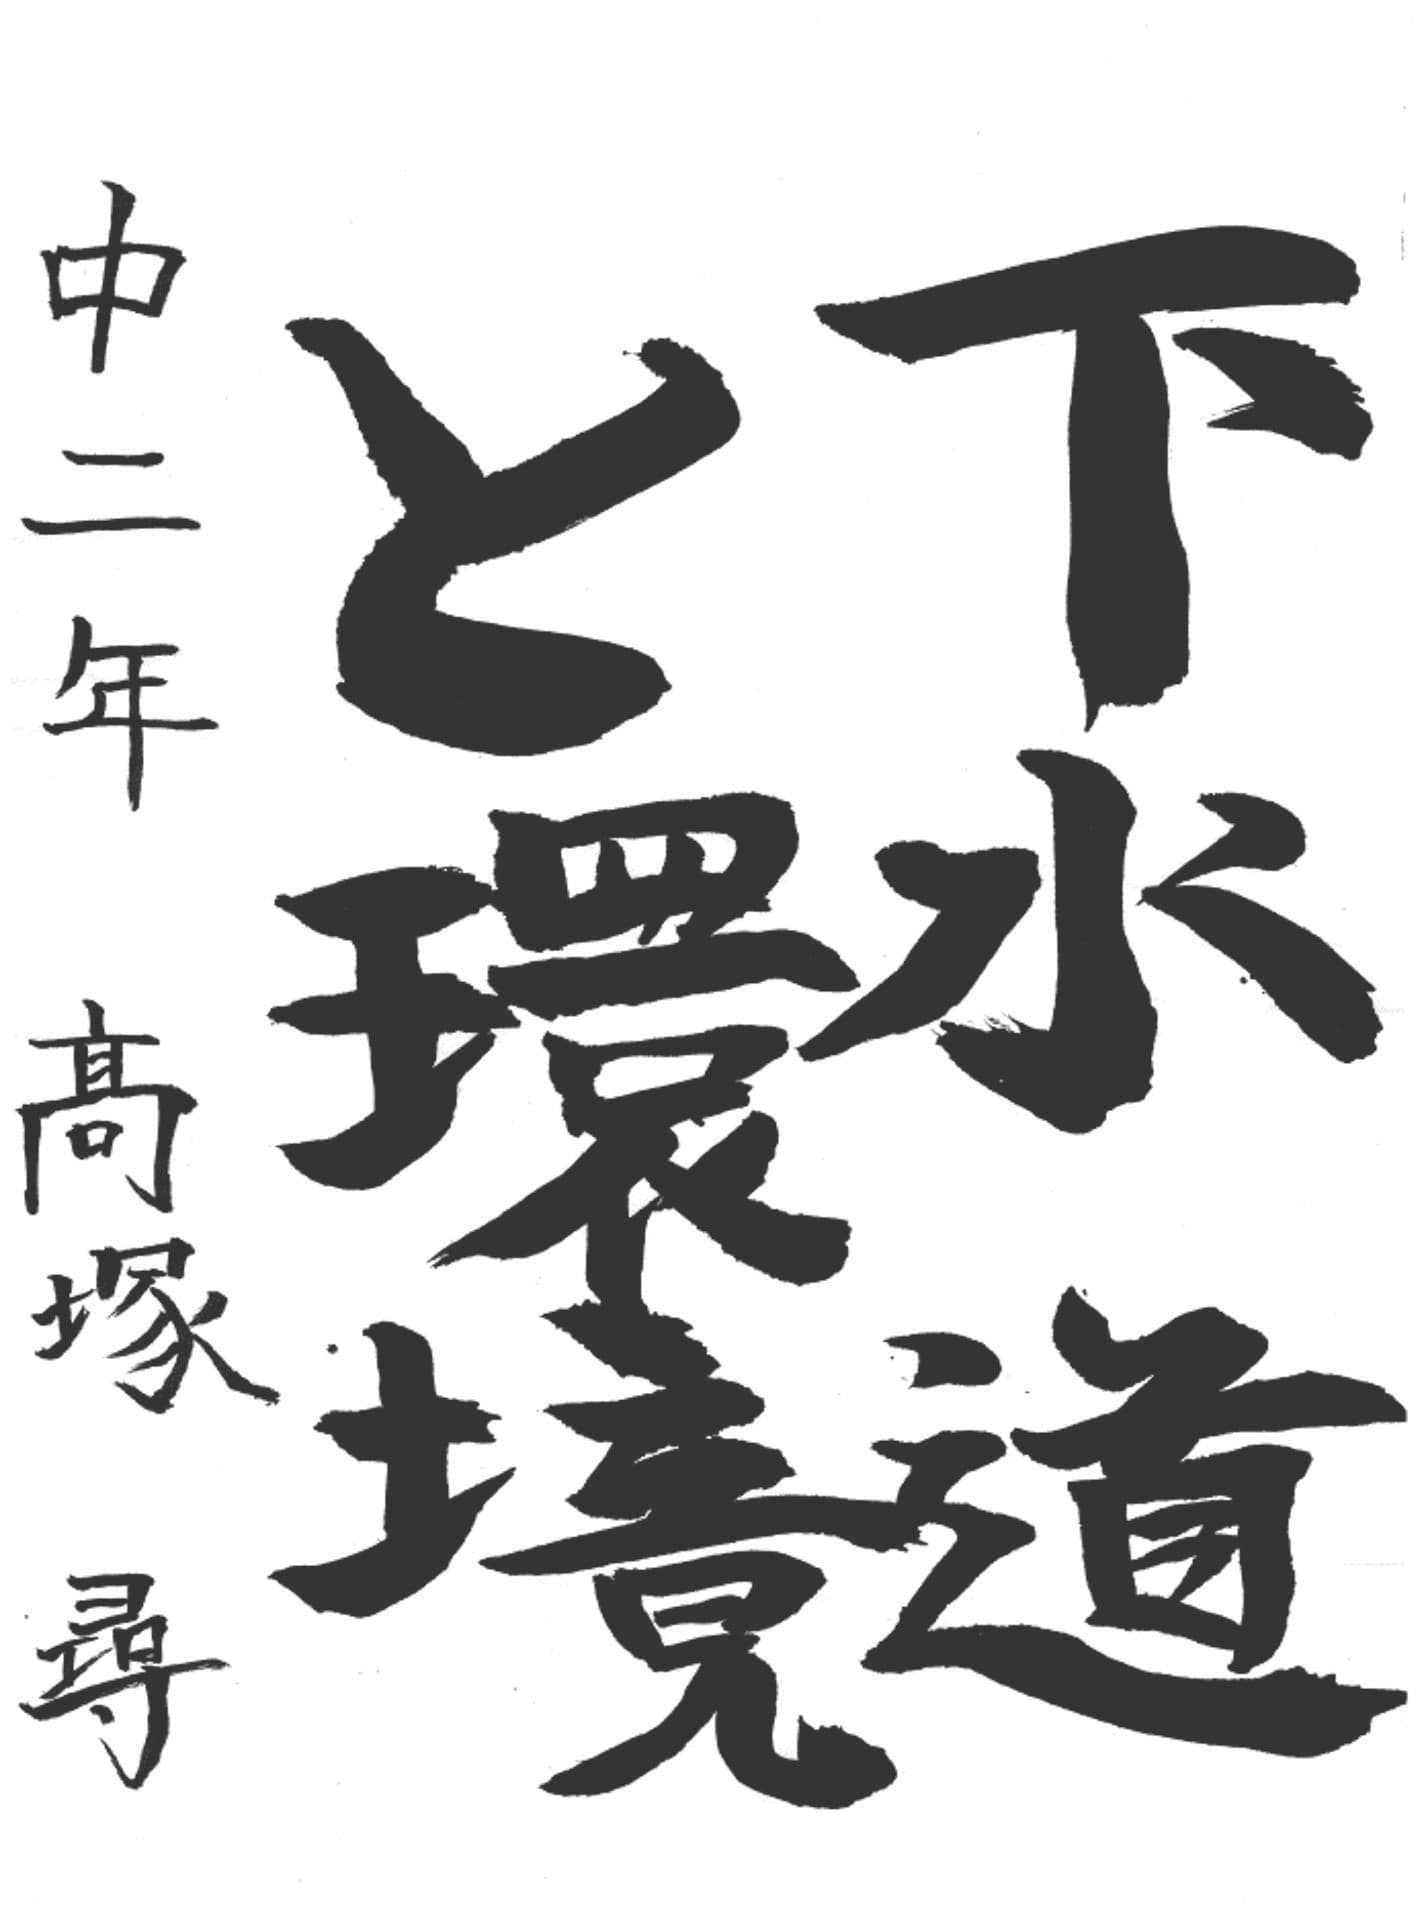 下水道
と環境
中二年 高塚 尋